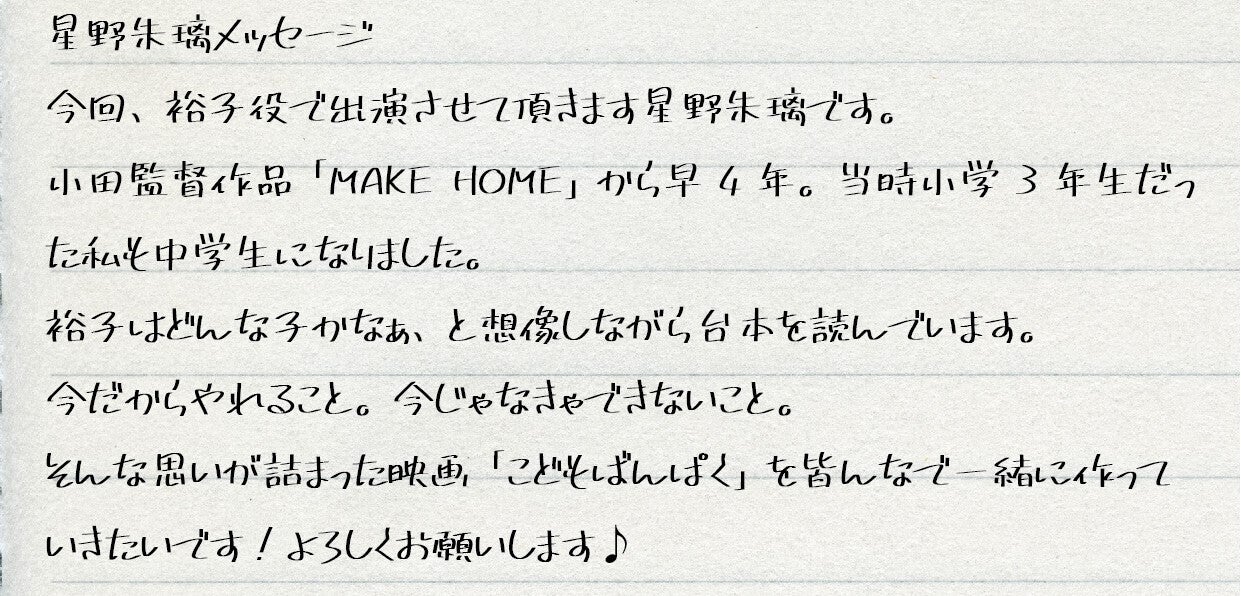 星野朱璃メッセージ
今回、裕子役で出演させて頂きます星野朱璃です。
小田監督作品「MAKE HOME」から早4年。当時小学3年生だっ
た私も中学生になりました。
裕子はどんな子かなぁ、と想像しながら台本を読んでいます。
今だからやれること。今じゃなきゃできないこと。
そんな思いが詰まった映画「こどもばんぱく」を皆んなで一緒に作って
いきたいです！よろしくお願いします♪